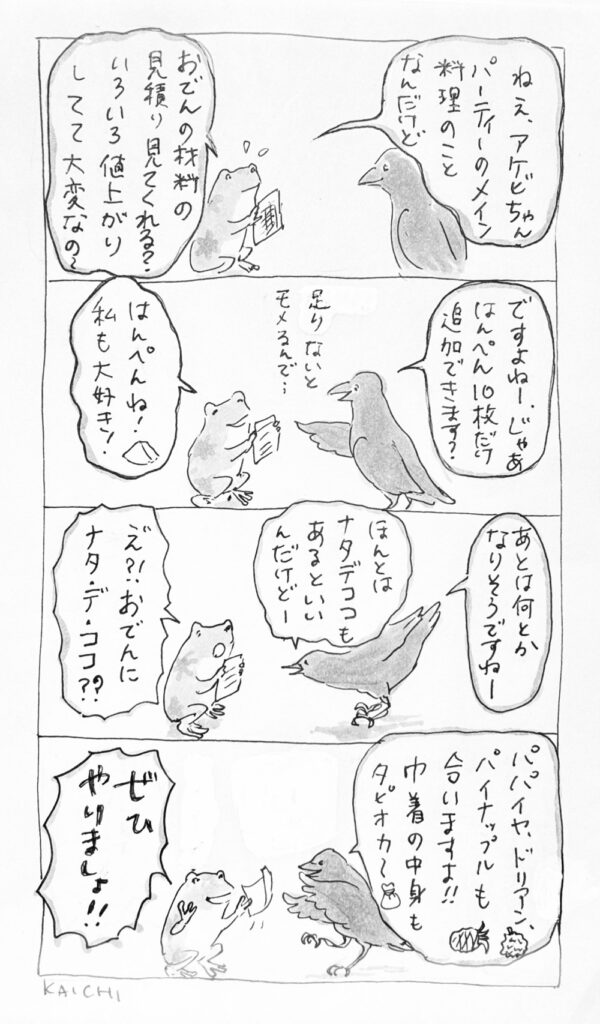 ねえ、アケビちゃん
パーティーのメイン
料理のこと
なんだけど
おでんの材料の
見積り見てくれる?
いろいろ値上がり
してて大変なの〜
ですよねー、じゃあ
はんぺん10枚だけ
追加できます?
足りないと
モメるんで…
はんぺんね!
私も大好きン!
あとは何とか
なりそうですねー
ほんとは
ナタデココも
あるといい
んだけどー
え゛?!おでんに
ナタ・デ・ココ??
パパイヤ、ドリアン、
パイナップルも
合いますよ!!
巾着の中身も
タピオカ〜
ぜひ
やりましょ!!
KAICHI